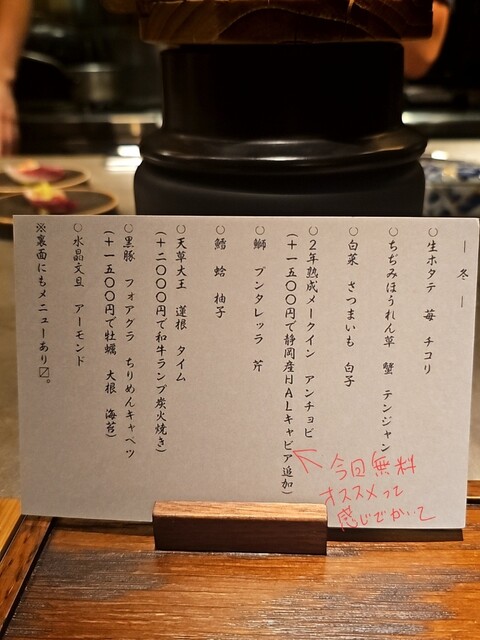 ― 冬 ―
○生ホタテ 苺 チコリ
○ちぢみほうれん草 蟹 テンジャン
○白菜 さつまいも 白子
○2年熟成メークイン アンチョビ
(+一五〇〇円で静岡産HALキャビア追加)
○鰤 プンタレッラ 芹
○鱈 蛤 柚子
○天草大王 蓮根 タイム
(+二〇〇〇円で和牛ランプ炭火焼き)
○黒豚 フォアグラ ちりめんキャベツ
(+一五〇〇円で牡蠣 大根 海苔)
○水晶文旦 アーモンド
※裏面にもメニューあり〼。
今回無料
オススメって
感じでかいて